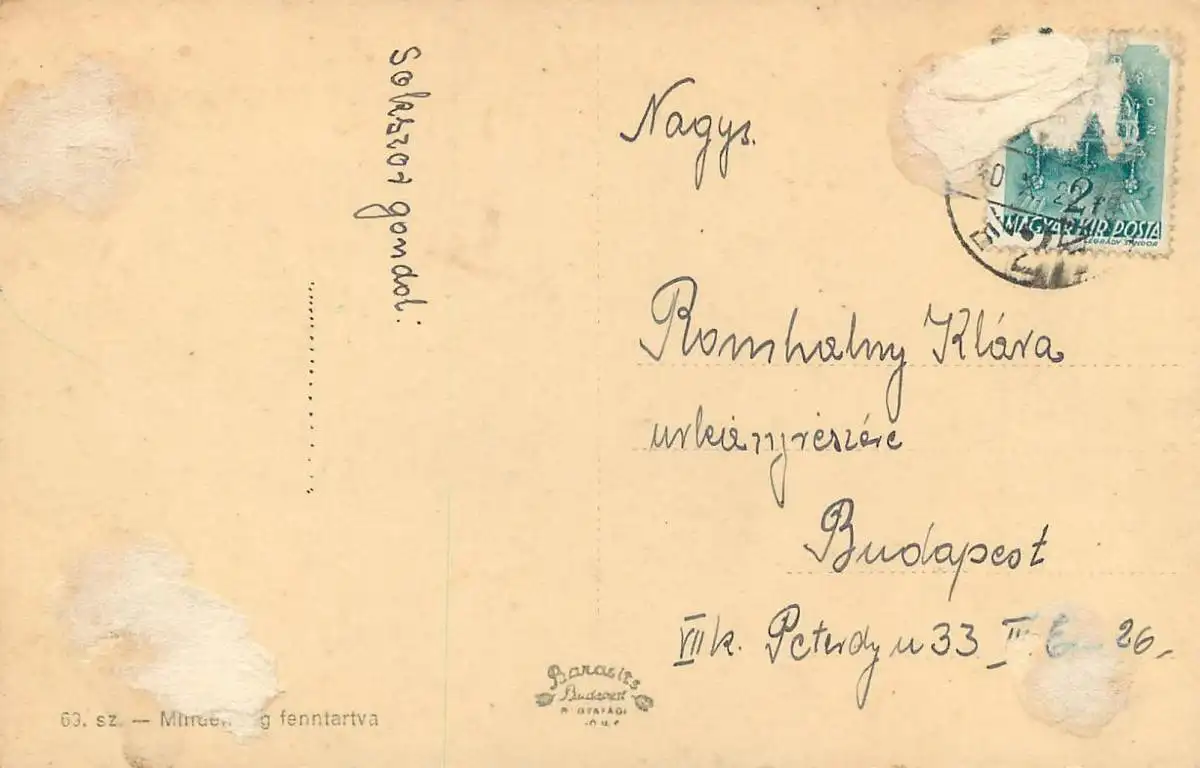 Sokszor gondol:
Nagys.
Romhalmy Klára
urleányrészére
Budapest
VII k. Peterdy u 33 III 26.
2
MAGYAR KIR. POSTA
LÉGRÁDY SÁNDOR
Barasits
Budapest
63. sz. — Minden fenntartva